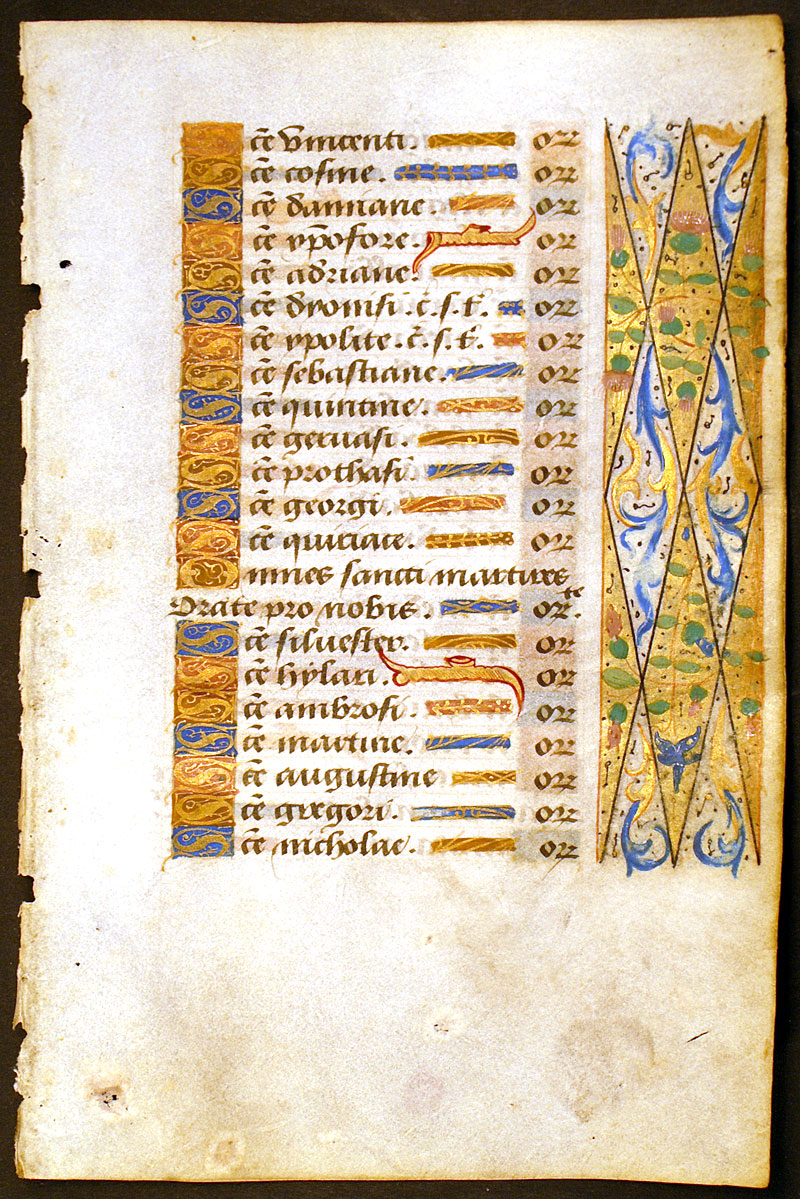 Sc̄e vincenti. or
Sc̄e cosme. or
Sc̄e damiane. or
Sc̄e xp̄ofore. or
Sc̄e adriane. or
Sc̄e dyonisi .c̄.s.t̄. or
Sc̄e ypolite .c̄.s.t̄. or
Sc̄e sebastiane. or
Sc̄e quintine. or
Sc̄e geruasi. or
Sc̄e prothasi. or
Sc̄e georgi. or
Sc̄e quiriace. or
Omnes sancti martires
Orate pro nobis. orte.
Sc̄e siluester. or
Sc̄e hylari. or
Sc̄e ambrosi. or
Sc̄e martine. or
Sc̄e augustine or
Sc̄e gregori. or
Sc̄e nicholae. or